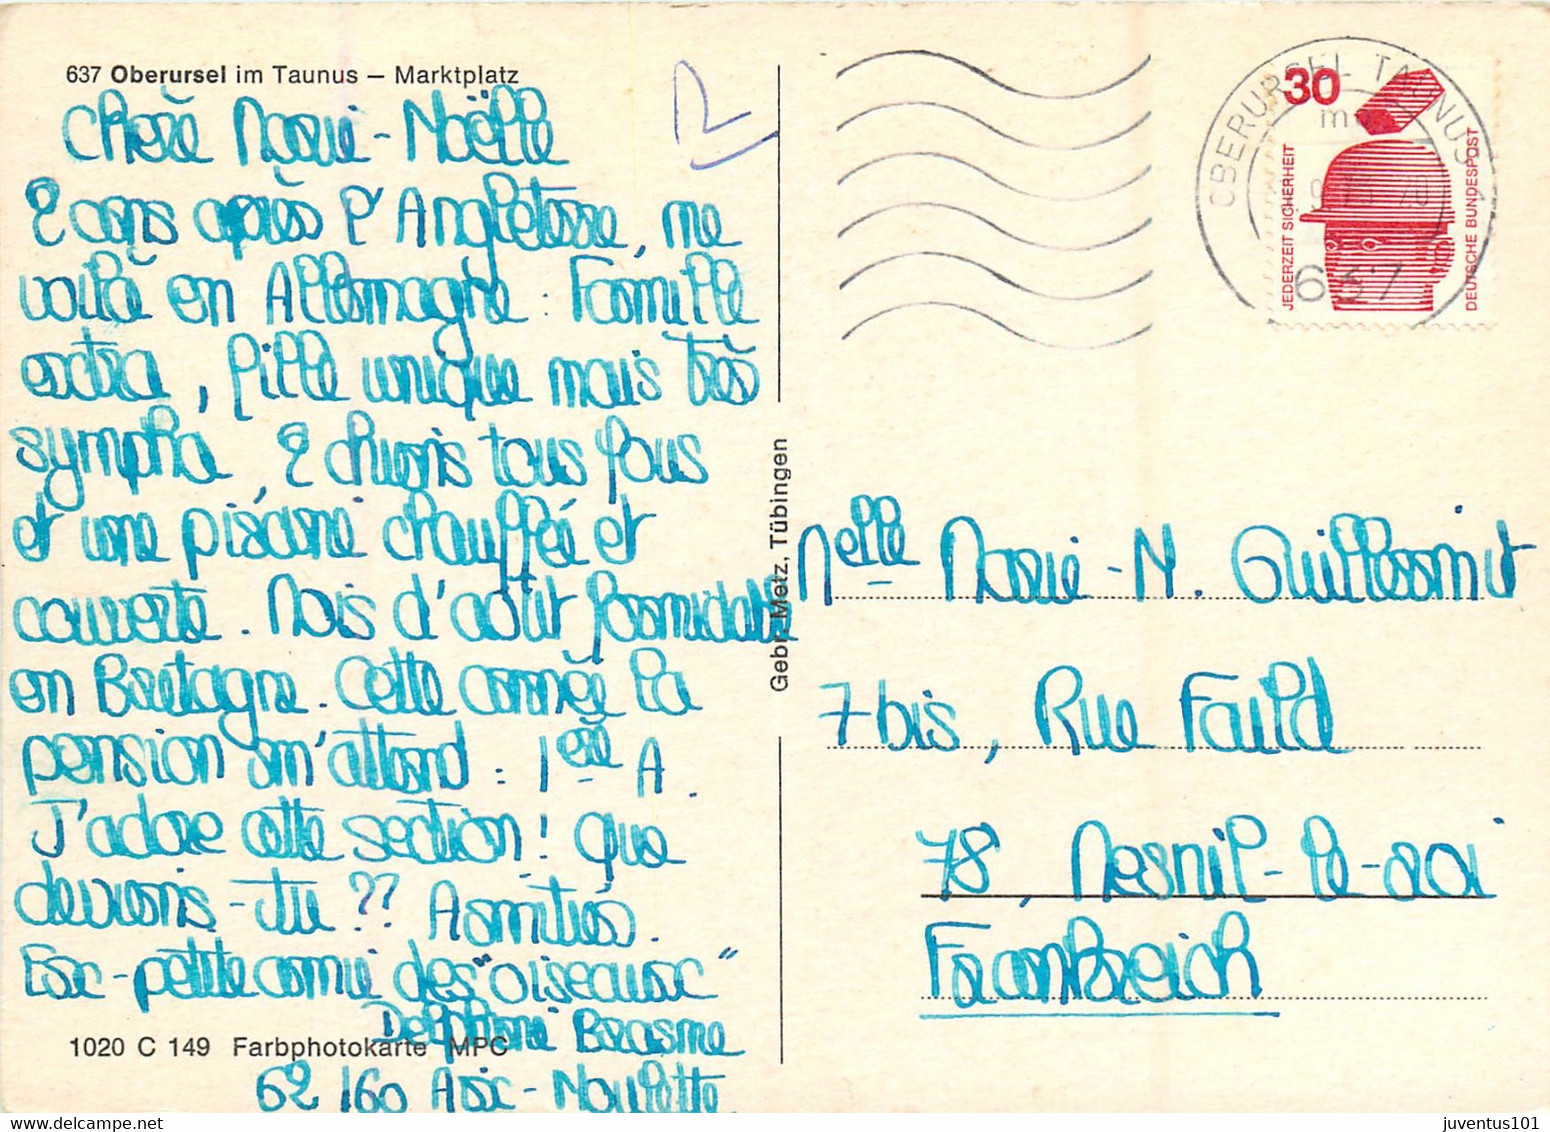 637 Oberursel im Taunus – Marktplatz
Chère Marie-Noëlle
2 ans après l'Angleterre, me
voilà en Allemagne : Famille
extra, fille unique mais très
sympha, 2 chiens tous fous
et une piscine chauffée et
couverte. Mois d'août formidable
en Bretagne. Cette année la
pension m'attend : 1ère A.
J'adore cette section ! Que
deviens-tu ?? Amitiés.
Ex-petite amie des "oiseaux"
Delphine Brasme
62 160 Aix-Noulette
1020 C 149 Farbphotokarte MPC
Gebr. Metz, Tübingen
OBERURSEL TAUNUS
637
30
JEDERZEIT SICHERHEIT
DEUTSCHE BUNDESPOST
Melle Marie-N. Guillermit
7bis, Rue Faild
78, Mesnil-le-roi
Frankreich
juventus101